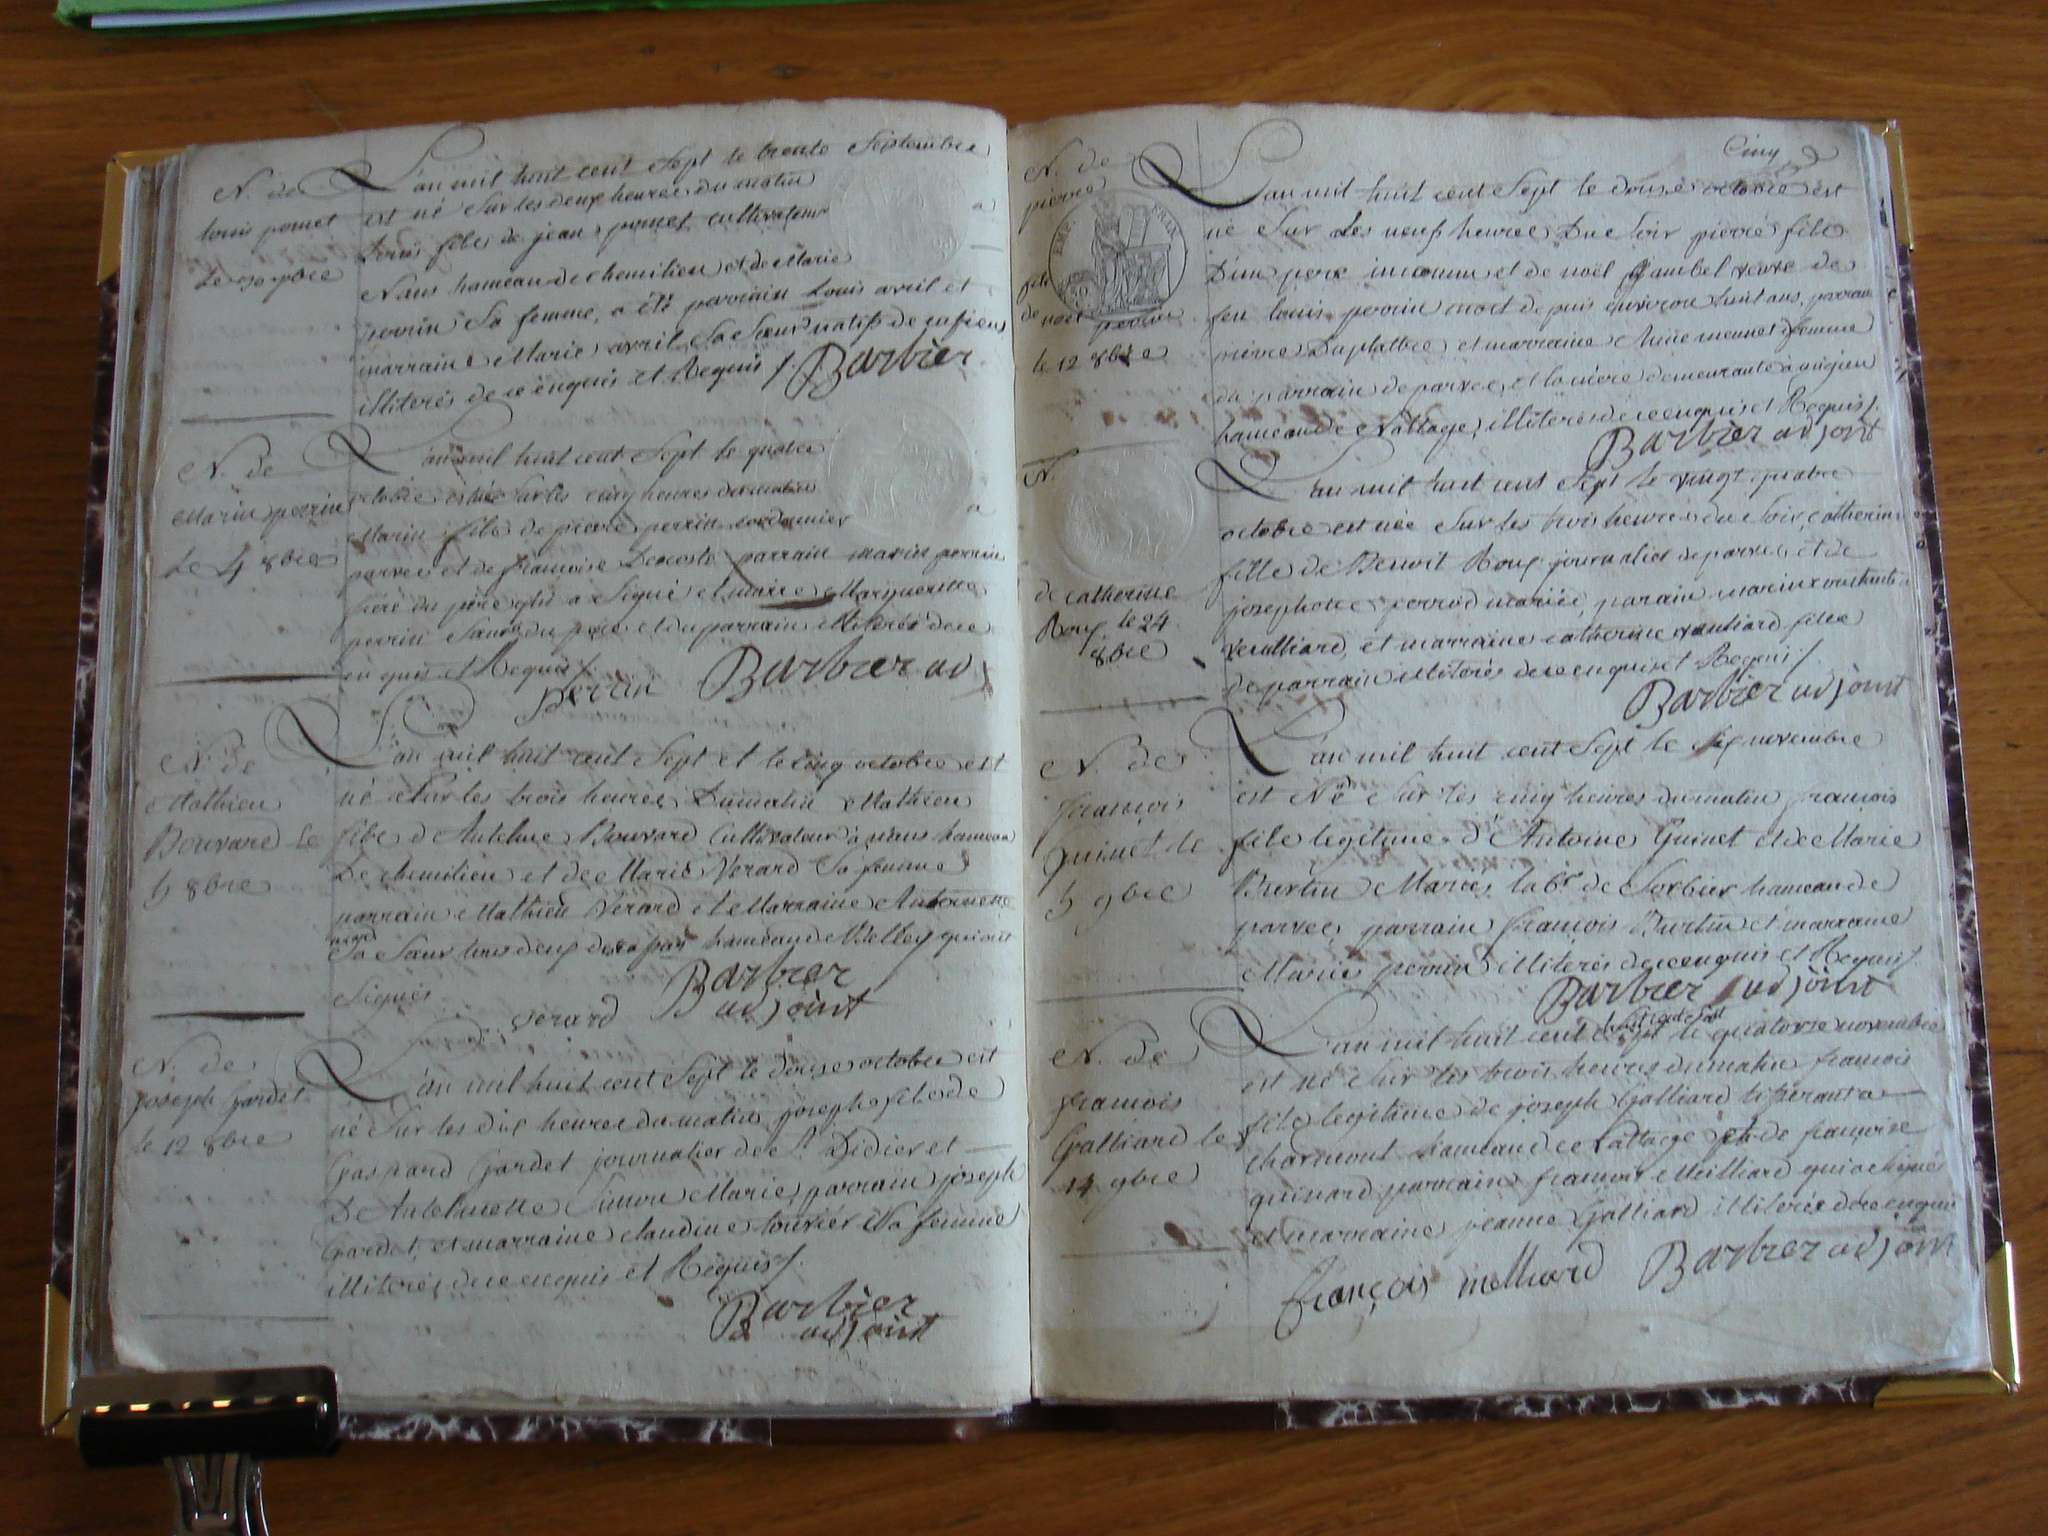 N. de
louis pomet
Le 30 7bre
L'an mil huit cent Sept le trente Septembre
est né Sur les deux heures du matin
Louis fils de jean pomet cultivateur
Nans hameau de chemilieu et de Marie
perrin Sa femme, a été parrain Louis avril et
marraine Marie avril Sa Sœur natifs de
illiterés de ce enquis et Requis /. Barbier
N. de
Marin perrin
Le 4 8bre
L'an mil huit cent Sept le quatre
octobre est né Sur les cinq heures du matin
Marin fils de pierre perrin cordonnier
parves et de françoise Decoste parrain marin perrin
frere du père qui a Signé et Marguerette
perrin Sœur du père et du parrain illiterée de ce
enquis et Requis /.
perrin Barbier adj
N. de
Mathieu
Bouvard Le
5 8bre
L'an mil huit cent Sept et le cinq octobre est
né Sur les trois heures Du matin Mathieu
fils d'Antelme Bouvard Cultivateur à Nans hameau
De chemilieu et de Marie Verard Sa femme
parrain Mathieu Verard et Marraine Antermette
Sa Sœur tous deux de hameau de Belley qui ont
Signés
verard Barbier
adjoint
N. de
Joseph Gardet
le 12 8bre
L'an mil huit cent Sept le douze octobre est
né Sur les dix heures du matin joseph fils de
Gaspard Gardet journalier de St. Didier et
D'Antelmette Simon Marie, parrain joseph
Gardet, et marraine claudine touvier Sa femme
illiterés de ce enquis et Requis /.
Barbier
adjoint
Cinq
N. de
pierre
EMP. FRAN.
fils
de noel perrin
le 12 8bre
L'an mil huit cent Sept le douze octobre est
né Sur Les neuf heures Du Soir pierre fils
D'un pere inconnu et de noël Gambel veuve de
feu louis perrin mort depuis environ huit ans, parrain
pierre Duplattre et marraine Anne monnet femme
du parrain de parves, et la mère demeurante à
hameau de Nattage, illiterés de ce enquis et Requis /.
Barbier adjoint
N.
de catherine
Roux le 24
8bre
L'an mil huit cent Sept le vingt quatre
octobre est née Sur les trois heures du Soir catherine
fille de Benoit Roux journalier de parves et de
josephete perrod mariés, parain
veulliard, et marraine catherine veulliard fille
de parrain illiterés de ce enquis et Requis /.
Barbier adjoint
N. de
françois
Guinet le
5 9bre
L'an mil huit cent Sept le novembre
est Né Sur les cinq heures du matin françois
fils legitime d'Antoine Guinet et de Marie
Burtin Mariés, labr. de Sorbier hameau de
parves, parrain françois Burtin et marraine
Marie perrin illiterés de ce enquis et Requis /.
Barbier adjoint
N. de
francois
Galliard le
14 9bre
L'an mil huit cent Sept le quatorze novembre
est né Sur les trois heures du matin francois
fils legitime de joseph Galliard tisserant a
charmont hameau de Nattage et de françoise
guinard parrain francois Meilliard qui a Signé
et marraine jeanne Galliard illiterée de ce enquis
françois meilliard Barbier adjoint